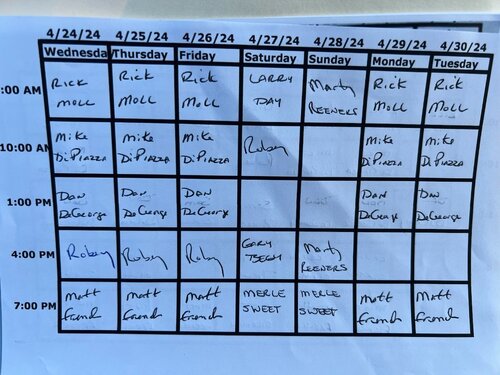 4/24/24 4/25/24 4/26/24 4/27/24 4/28/24 4/29/24 4/30/24
Wednesda Thursday Friday Saturday Sunday Monday Tuesday
:00 AM Rick Rick Rick LARRY Marty Rick Rick
MOLL MOLL MOLL DAY REENERS MOLL MOLL
10:00 AM Mike Mike Mike Robey Mike Mike
DiPIAZZA DiPIAZZA DiPIAZZA DiPIAZZA DiPIAZZA
1:00 PM Dan Dan Dan Dan Dan
DeGeorge DeGeorge DeGeorge DeGeorge DeGeorge
4:00 PM Robey Robey Robey GARY Marty
REENERS
7:00 PM Matt Matt Matt MERLE MERLE Matt Matt
French French French SWEET SWEET French French